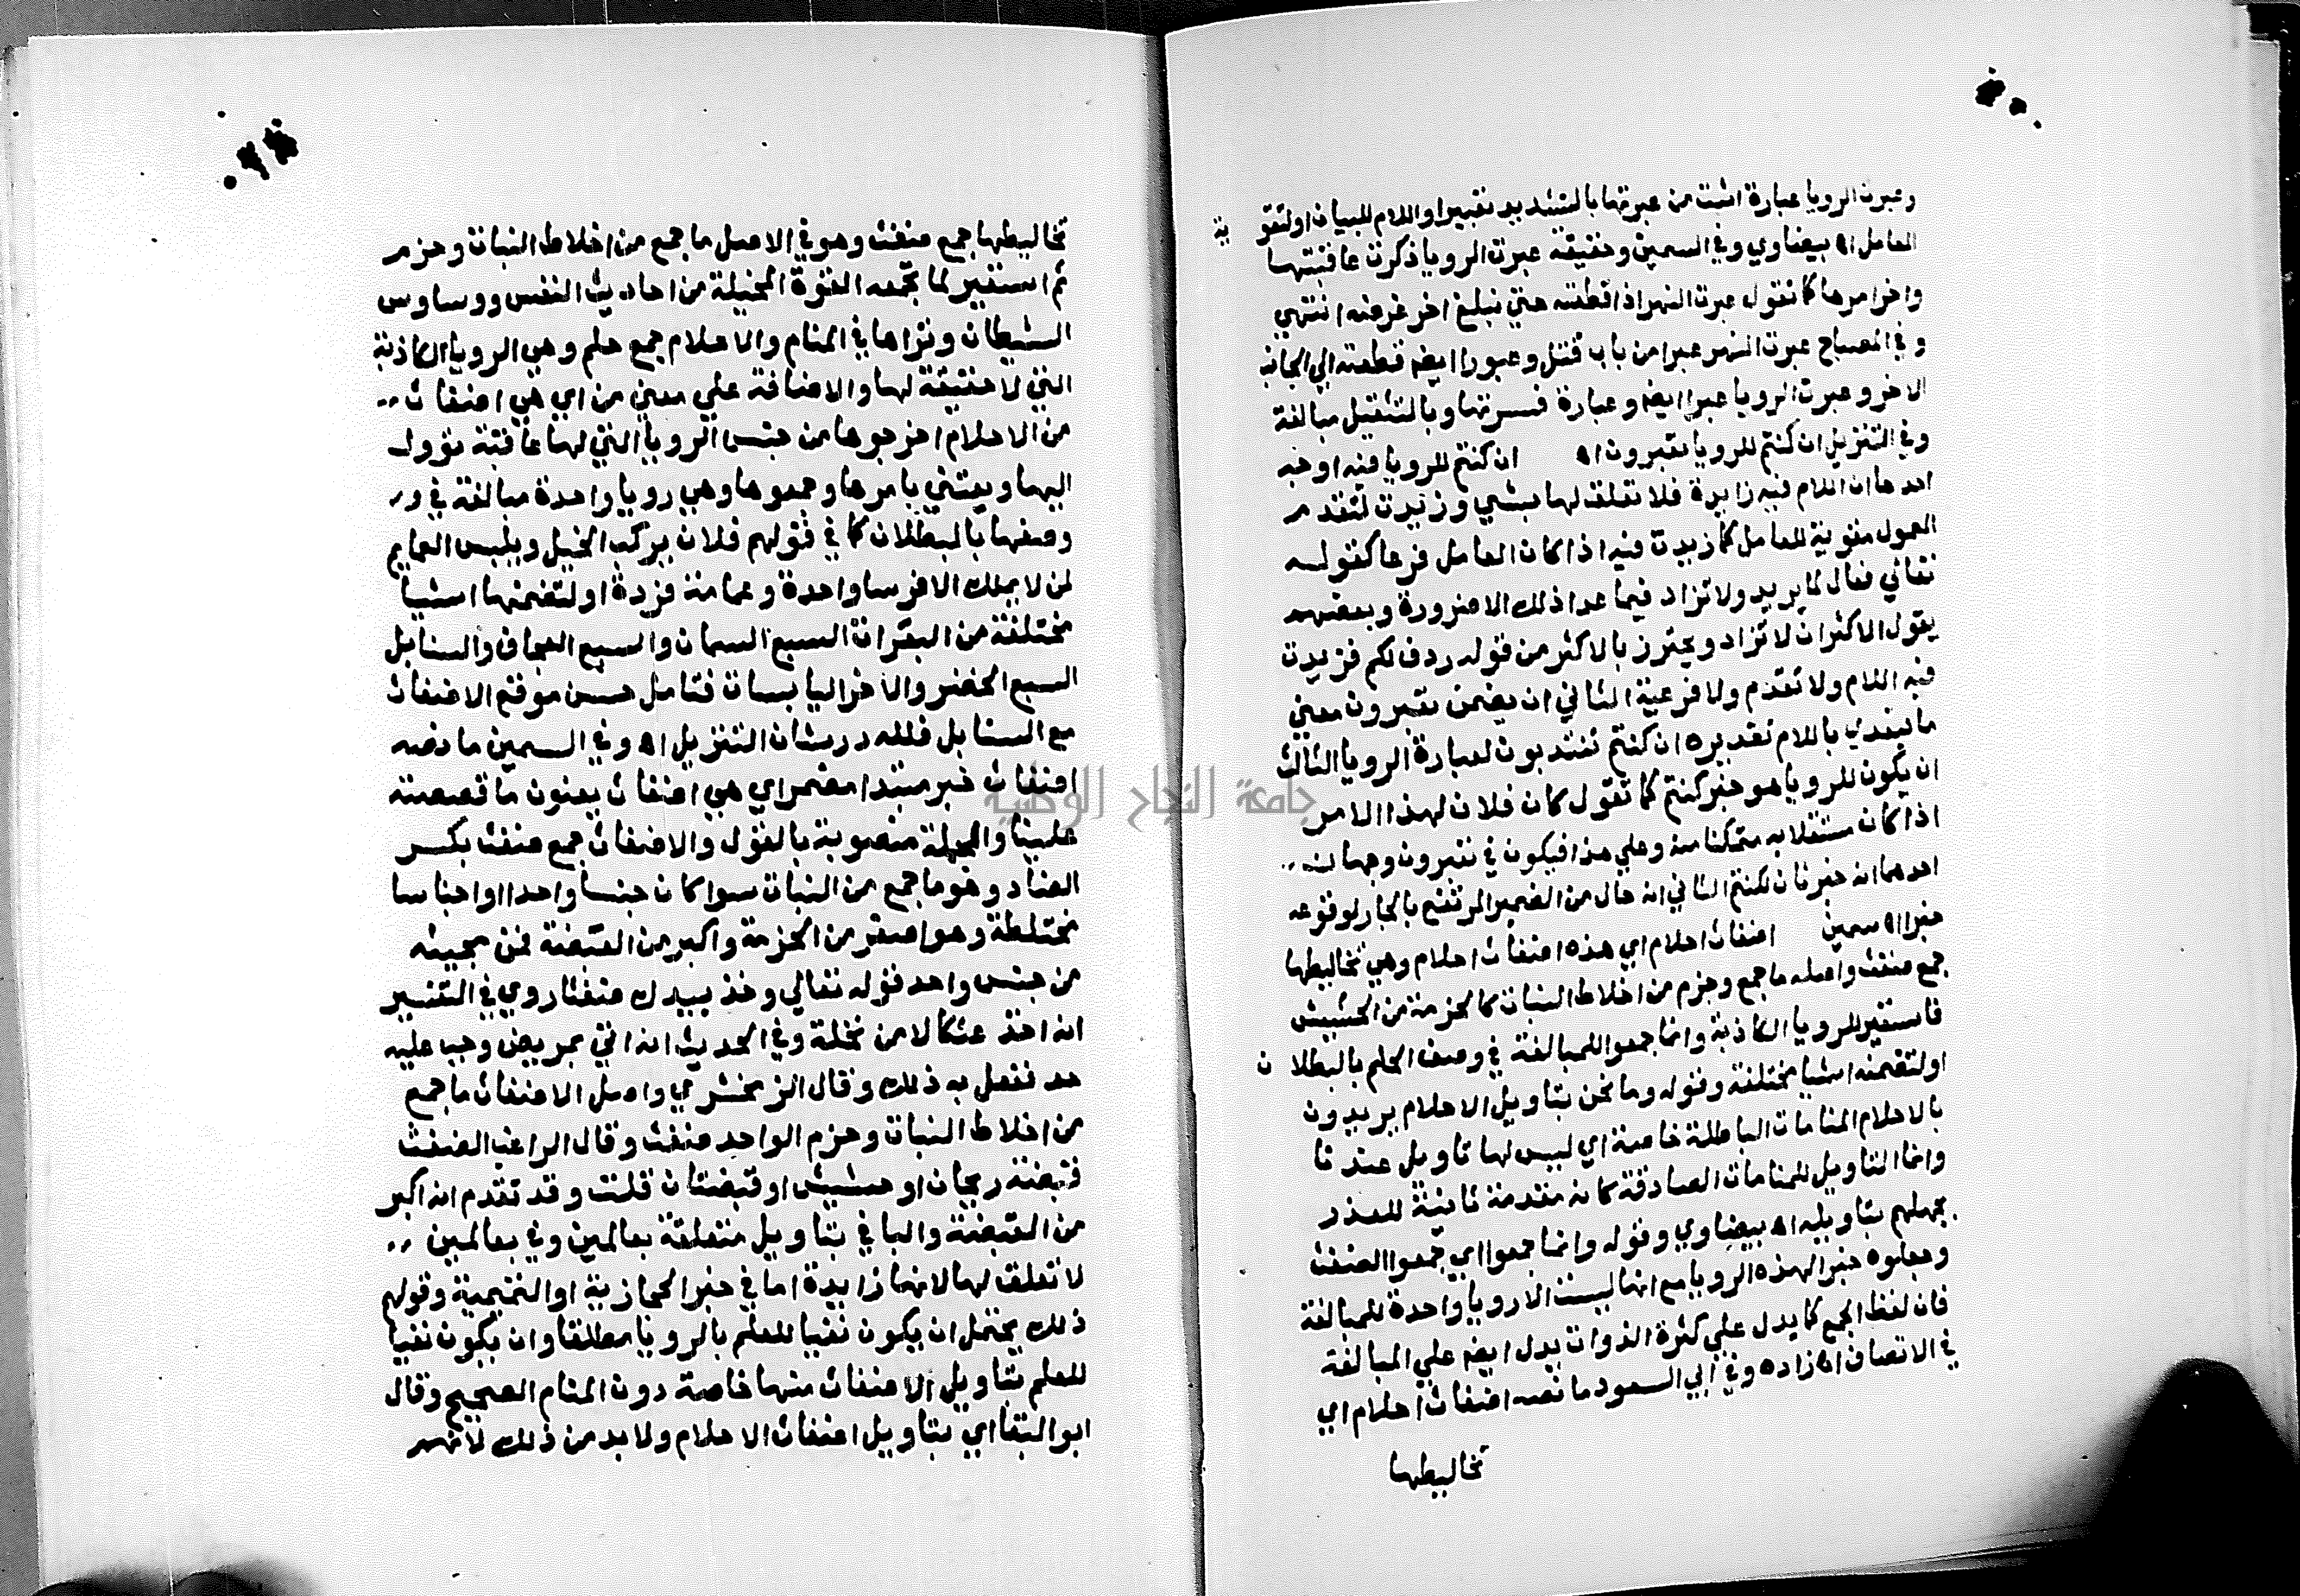 وعبرت الرويا عبارة اثبت من عبرتها بالتشديد تعبيرا واللام للبيان او لتقوية
العامل اه بيضاوي وفي السمين وحقيقة عبرت الرويا ذكرت عاقبتها
واخر امرها كما تقول عبرت النهر اذا قطعته حتي تبلغ اخر عرضه انتهي
وفي المصباح عبرت النهر عبرا من باب قتل وعبورا ايضا قطعته الي الجانب
الاخر وعبرت الرويا عبرا ايضا وعبارة فسرتها وبالتثقيل مبالغة
وفي التنزيل ان كنتم للرويا تعبرون اه ان كنتم للرويا فيه اوجه
احدها ان اللام فيه زايدة فلا تعلق لها بشي وزيدت لتقدم
المعمول مقوية للعامل كما زيدت فيه اذا كان العامل فرعا كقوله
تعالي فعال لما يريد ولا تزاد فيما عدا ذلك الا ضرورة وبعضهم
يقول الاكثر ان لا تزاد ويحترز بالاكثر من قوله ردف لكم فزيدت
فيه اللام ولا تقدم ولا فرعية الثاني ان يضمن تعبرون معني
ما يتعدي باللام تقديره ان كنتم تنتدبون لعبارة الرويا الثالث
ان يكون للرويا هو خبر كنتم كما تقول كان فلان لهذا الامر
اذا كان مستقلا به متمكنا منه وعلي هذا فيكون في تعبرون وجهان
احدهما انه خبر ثان لكنتم الثاني انه حال من الضمير المرتفع بالجار لوقوعه
خبرا اه سمين اضغاث احلام اي هذه اضغاث احلام وهي تخاليطها
جمع ضغث واصله ما جمع وحزم من اخلاط النبات كالحزمة من الحشيش
فاستعير للرويا الكاذبة وانما جمعوا للمبالغة في وصف الحلم بالبطلان
او لتضمنه اشيا مختلفة وقوله وما نحن بتاويل الاحلام يريدون
بالاحلام المنامات الباطلة خاصة اي ليس لها تاويل عندنا
وانما التاويل للمنامات الصادقة كانه مقدمة ثانية للعذر
بجهلهم بتاويله اه بيضاوي وقوله وانما جمعوا اي جمعوا الضغث
وجعلوه خبرا لهذه الرويا مع انها ليست الا رويا واحدة للمبالغة
فان لفظ الجمع كما يدل علي كثرة الذوات يدل ايضا علي المبالغة
في الاتصاف اه زاده وفي ابي السعود ما نصه اضغاث احلام اي
تخاليطها
تخاليطها جمع ضغث وهو في الاصل ما جمع من اخلاط النبات وحزم
ثم استعير لما تجمعه القوة المخيلة من احاديث النفس ووساوس
الشيطان وتراها في المنام والاحلام جمع حلم وهي الرويا الكاذبة
التي لا حقيقة لها والاضافة علي معني من اي هي اضغاث
من الاحلام اخرجوها من جنس الرويا التي لها عاقبة تؤول
اليها ويعتني بامرها وجمعوها وهي رويا واحدة مبالغة في
وصفها بالبطلان كما في قولهم فلان يركب الخيل ويلبس العمايم
لمن لا يملك الا فرسا واحدة وعمامة فردة او لتضمنها اشيا
مختلفة من البقرات السبع السمان والسبع العجاف والسنابل
السبع الخضر والاخر اليابسات فتامل حسن موقع الاضغاث
مع السنابل فلله در شان التنزيل اه وفي السمين ما نصه
اضغاث خبر مبتدا مضمر اي هي اضغاث يعنون ما قصصته
علينا والجملة منصوبة بالقول والاضغاث جمع ضغث بكسر
الضاد وهو ما جمع من النبات سوا كان جنسا واحدا او اجناسا
مختلطة وهو اصغر من الحزمة واكبر من القبضة فمن مجيئه
من جنس واحد قوله تعالي وخذ بيدك ضغثا روي في التفسير
انه اخذ عثكالا من نخلة وفي الحديث انه اتي بمريض وجب عليه
حد ففعل به ذلك وقال الزمخشري واصل الاضغاث ما جمع
من اخلاط النبات وحزم الواحد ضغث وقال الراغب الضغث
قبضة ريحان او حشيش او قبضتان قلت وقد تقدم انه اكبر
من القبضة والبا في بتاويل متعلقة بعالمين وفي بعالمين
لا تعلق لها لانها زايدة اما في خبر الحجازية او التميمية وقولهم
ذلك يحتمل ان يكون نفيا للعلم بالرويا مطلقا وان يكون نفيا
للعلم بتاويل الاضغاث منها خاصة دون المنام الصحيح وقال
ابو البقا اي بتاويل اضغاث الاحلام ولا بد من ذلك لانهم
جامعة النجاح الوطنية